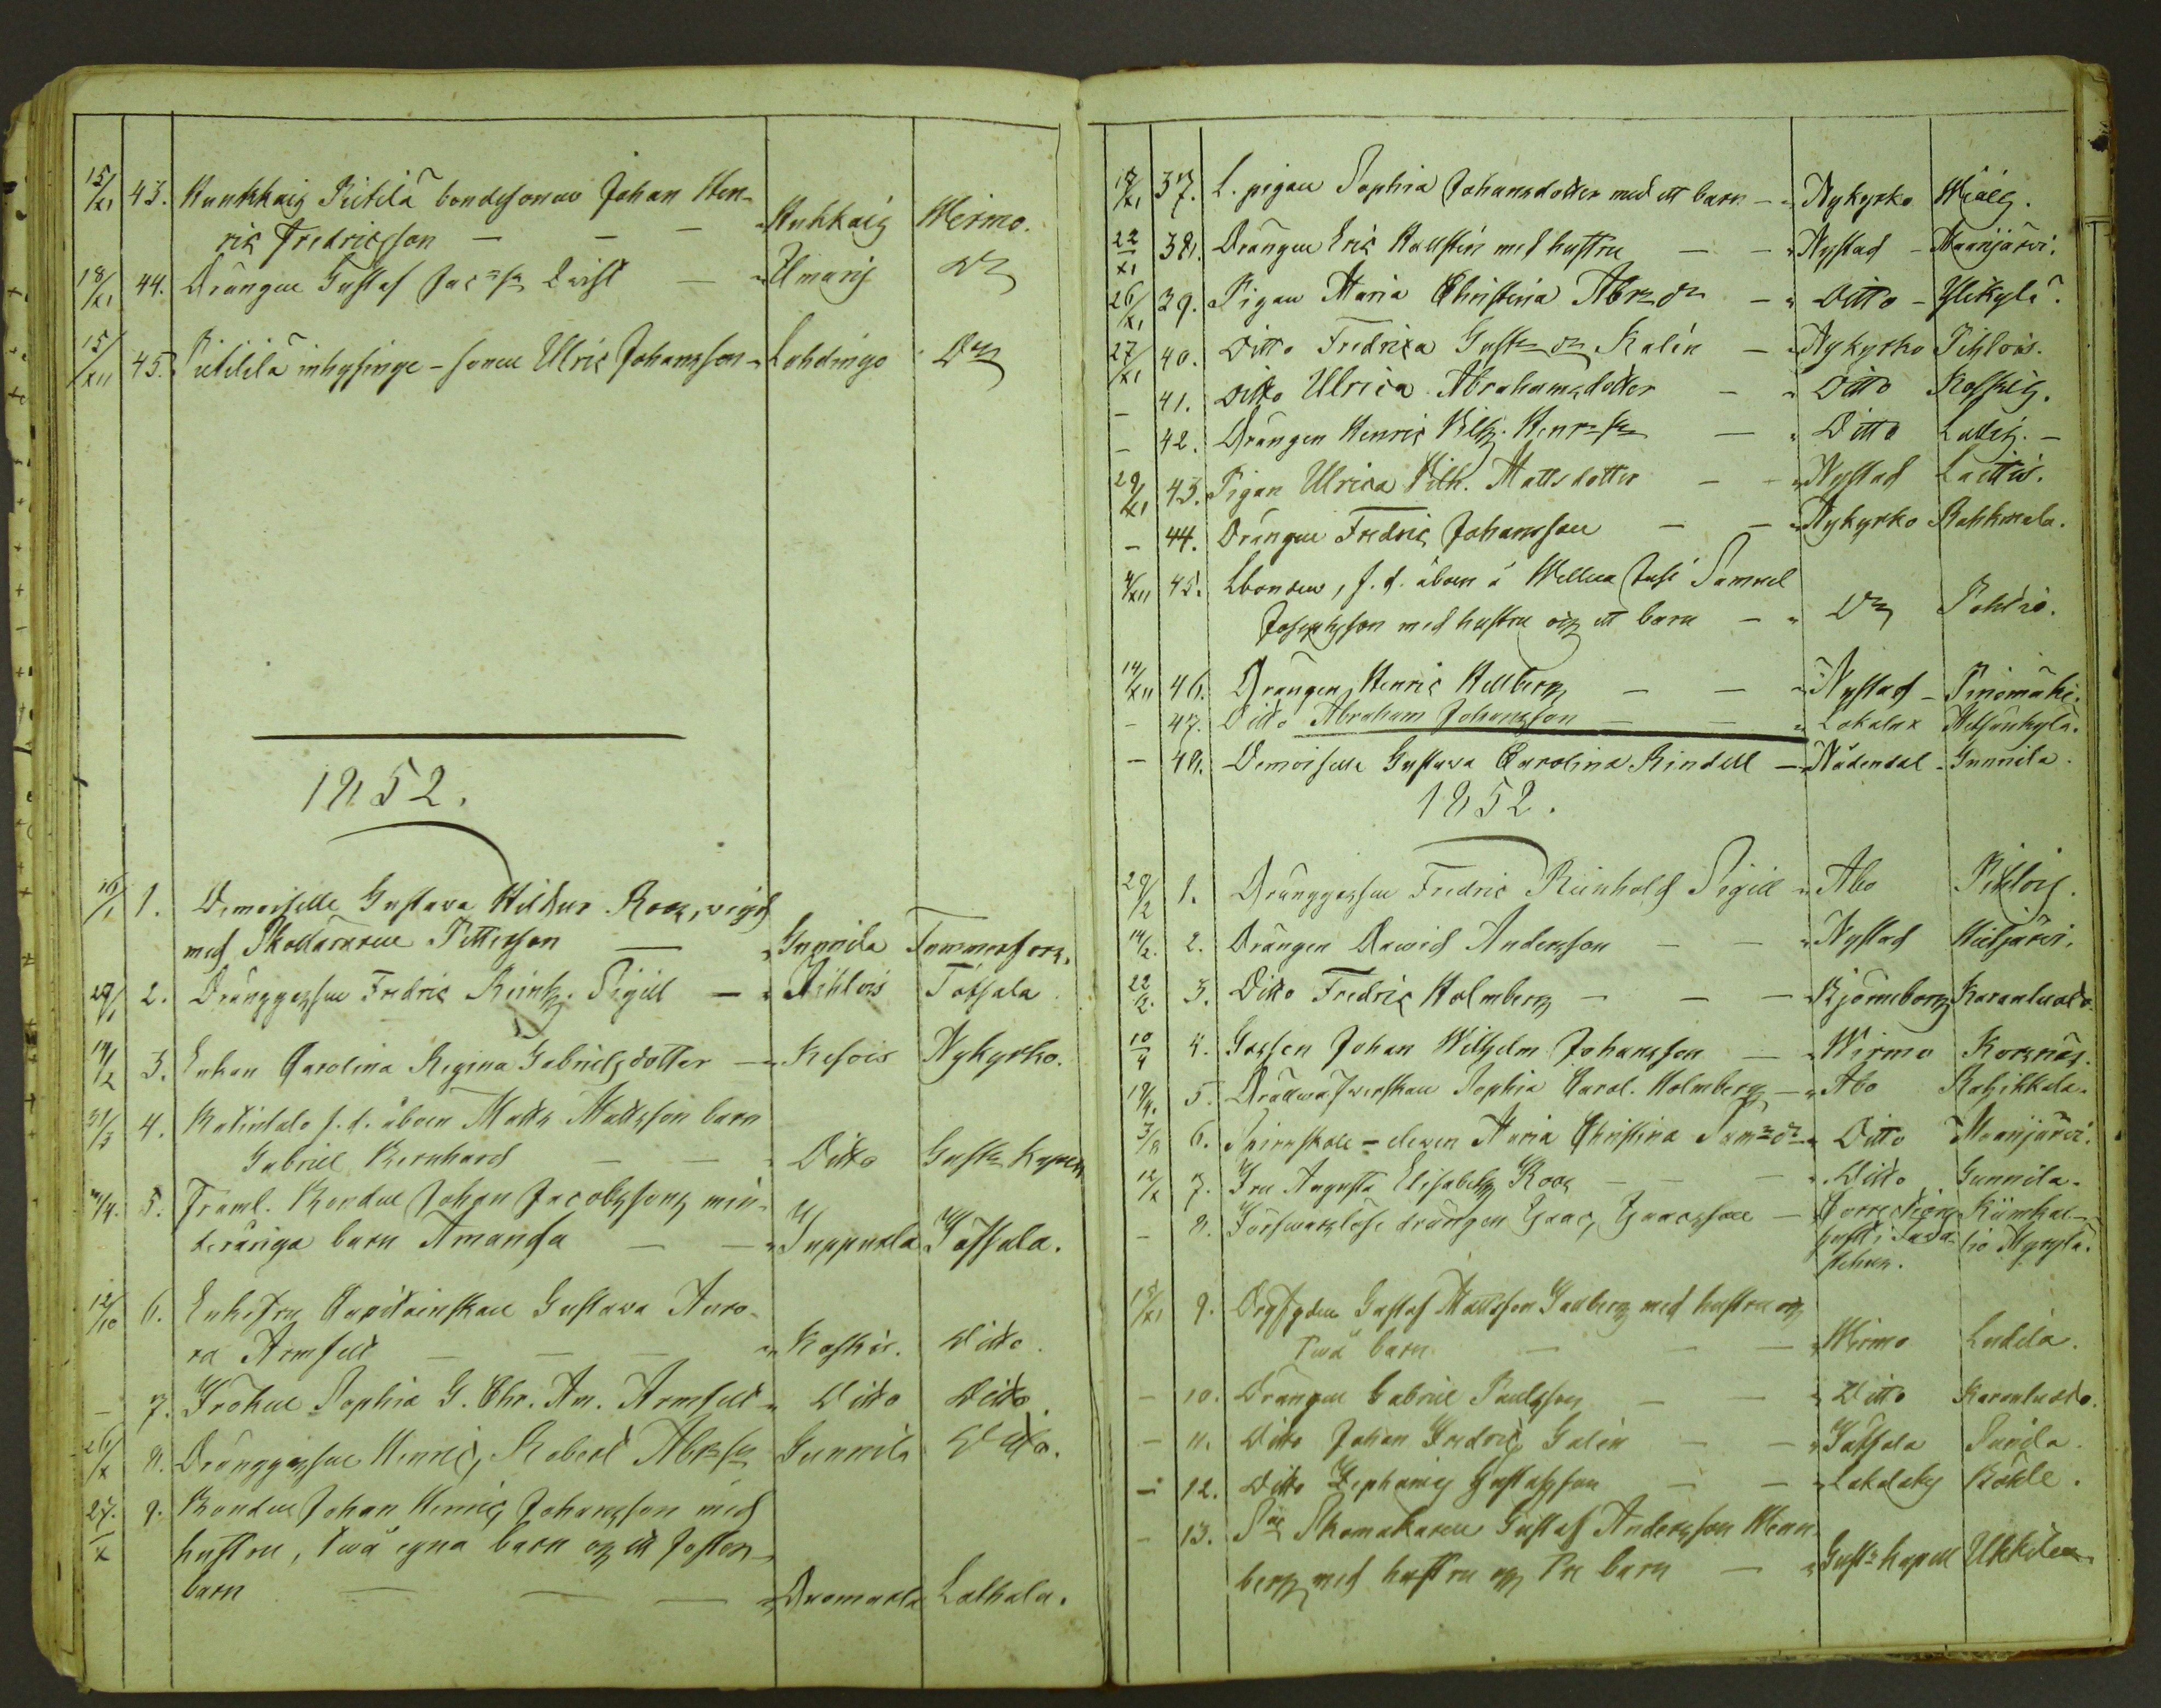 15/XI 43. Kunkkais Pietilä bondesonen Johan Hen-
ric Fredricsson — — — „ Kuhkais Wirmo.
18/XI 44. Drängen Gustaf Jacsn Qvist — „ Ilmaris Do
15/XII 45. Pietilä inhysinge-sonen Ulric Johansson „ Lohdingo Do
1852.
16/1 1. Demoiselle Gustava Hildur Roos, vigd
med Skolläraren Petterson — „ Gunnila Tammerfors.
27/1 2. Dränggossen Fredric Reinh. Sigill — „ Pihlois Töfsala.
14/2 3. Enkan Carolina Regina Gabrielsdotter — „ Kesois Nykyrko.
31/3 4. Katintalo f. d. åboen Matts Mattsson barn
Gabriel Bernhard — — „ Ditto Gustfs Kapell
/4. 5. Framl. Bonden Johan Jacobssons min-
deråriga barn Amanda — — „ Suppusla Töfsala.
12/10 6. Enkefru Capitainskan Gustava Auro-
ra Armfelt — — — „ Koskis. Ditto.
– 7. Fröken Sophia G. Chr. Au. Armfelt „ Ditto Ditto.
26/X 8. Dränggossen Henric Robert Abrsn Gunnila Ditto.
27/X 9. Bonden Johan Henric Johansson med
hustru, två egna barn og ett foster-
barn — — — „ Duomarla Laihala.
17/XI 37. L. pigan Sophia Johansdotter med ett barn — „ Nykyrko Wiais.
22/XI 38. Drängen Eric Hallstén med hustru — — „ Nystad – Maanjärvi.
26/XI 39. Pigan Maria Christina Abrsdr — „ Ditto – Ylikylä.
27/XI 40. Ditto Fredrica Gustfsdr Kalén — „ Nykyrko Pihlois.
– 41. Ditto Ulrica Abrahamsdotter — „ Ditto Koskis.
– 42. Drängen Henric Vilh. Henrsn — „ Ditto Ludit. –
29/XI 43. Pigan Ulrica Vilh. Mattsdotter — „ Nystad Laittis.
– 44. Drängen Fredric Johansson — — „ Nykyrko Rahkmala.
4/XII 45. f. d. åboen å Wellua Samuel
Josephsson med hustru og ett barn — „ Do Pohtio.
14/XII 46. Drängen Henric Hellberg — — „ Nystad – Pinomäki.
– 47. Ditto Abraham Johansson — — „ Lokalax Metsänkylä.
– 48. Demoiselle Gustava Carolina Rindell — „ Nådendal – Gunnila.
1852.
29/2 1. Dränggossen Fredric Reinhold Sigill „ Abo Pihlois.
14/2. 2. Drängen David Andersson — — „ Nystad Hietjärvi.
22/2. 3. Ditto Fredric Holmberg — — — „ Björneborg Karanluoto.
10/4 4. Gossen Johan Wilhelm Johansson — „ Wirmo Korsnäs.
19/4. 5. Sophia Carol. Holmberg — „ Abo Kahikkala.
3/8 6. Spinnskole-eleven Maria Christina Samsdr „ Ditto Maanjärvi.
12/X 7. Fru Augusta Elisabeth Roos — — — „ Ditto Gunnila.
– 8. Försvarslöse drängen Isaac Isaacsson — Corrections
huset i Tava-
stehus. Myrylä.
15/XI 9. Gustaf Mattsson Sallberg med hustru og
två barn — — — „ Wirmo Ludila.
– 10. Drängen Gabriel Paulsson — — „ Ditto Karanluoto.
– 11. Ditto Johan Fredric Galén — — „ Töfsala Sunila.
– 12. Ditto Zephanias Gustafsson — — „ Lokalaks Böhle.
– 13. Skomakaren Gustaf Andersson Wenn-
berg med hustru og tre barn — „ Gustfs kapell Ukkila.